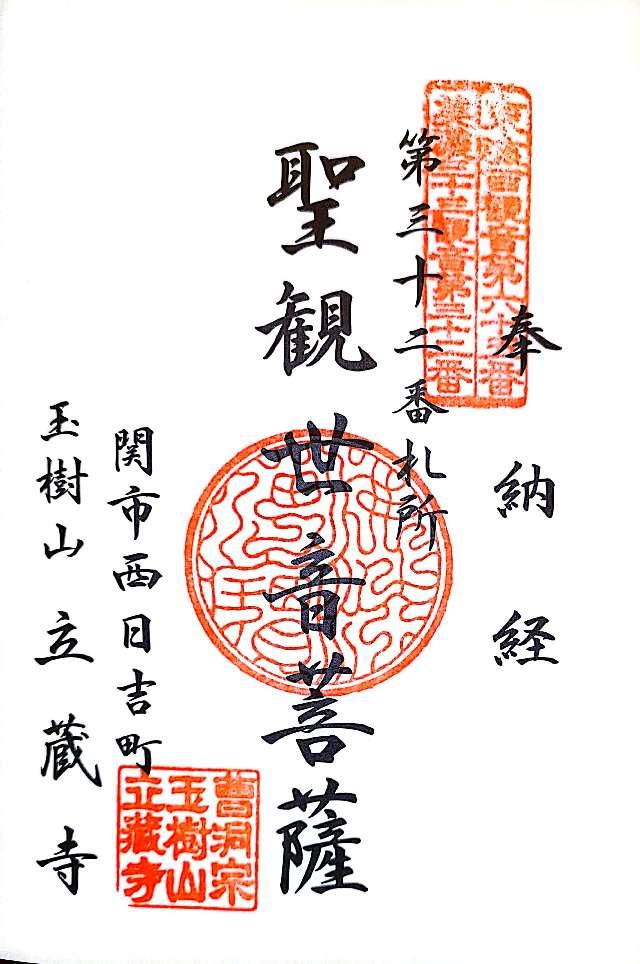 奉納経
第三十二番札所
聖観世音菩薩
関市西日吉町
玉樹山立蔵寺
曹洞宗
玉樹山
立蔵寺